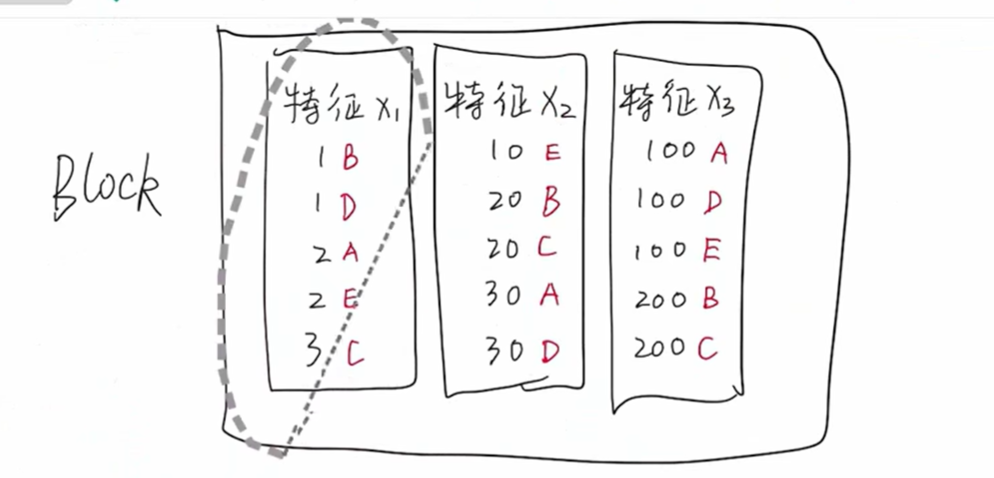 Block
特征 X1
1 B
1 D
2 A
2 E
3 C
特征 X2
10 E
20 B
20 C
30 A
30 D
特征 X3
100 A
100 D
100 E
200 B
200 C